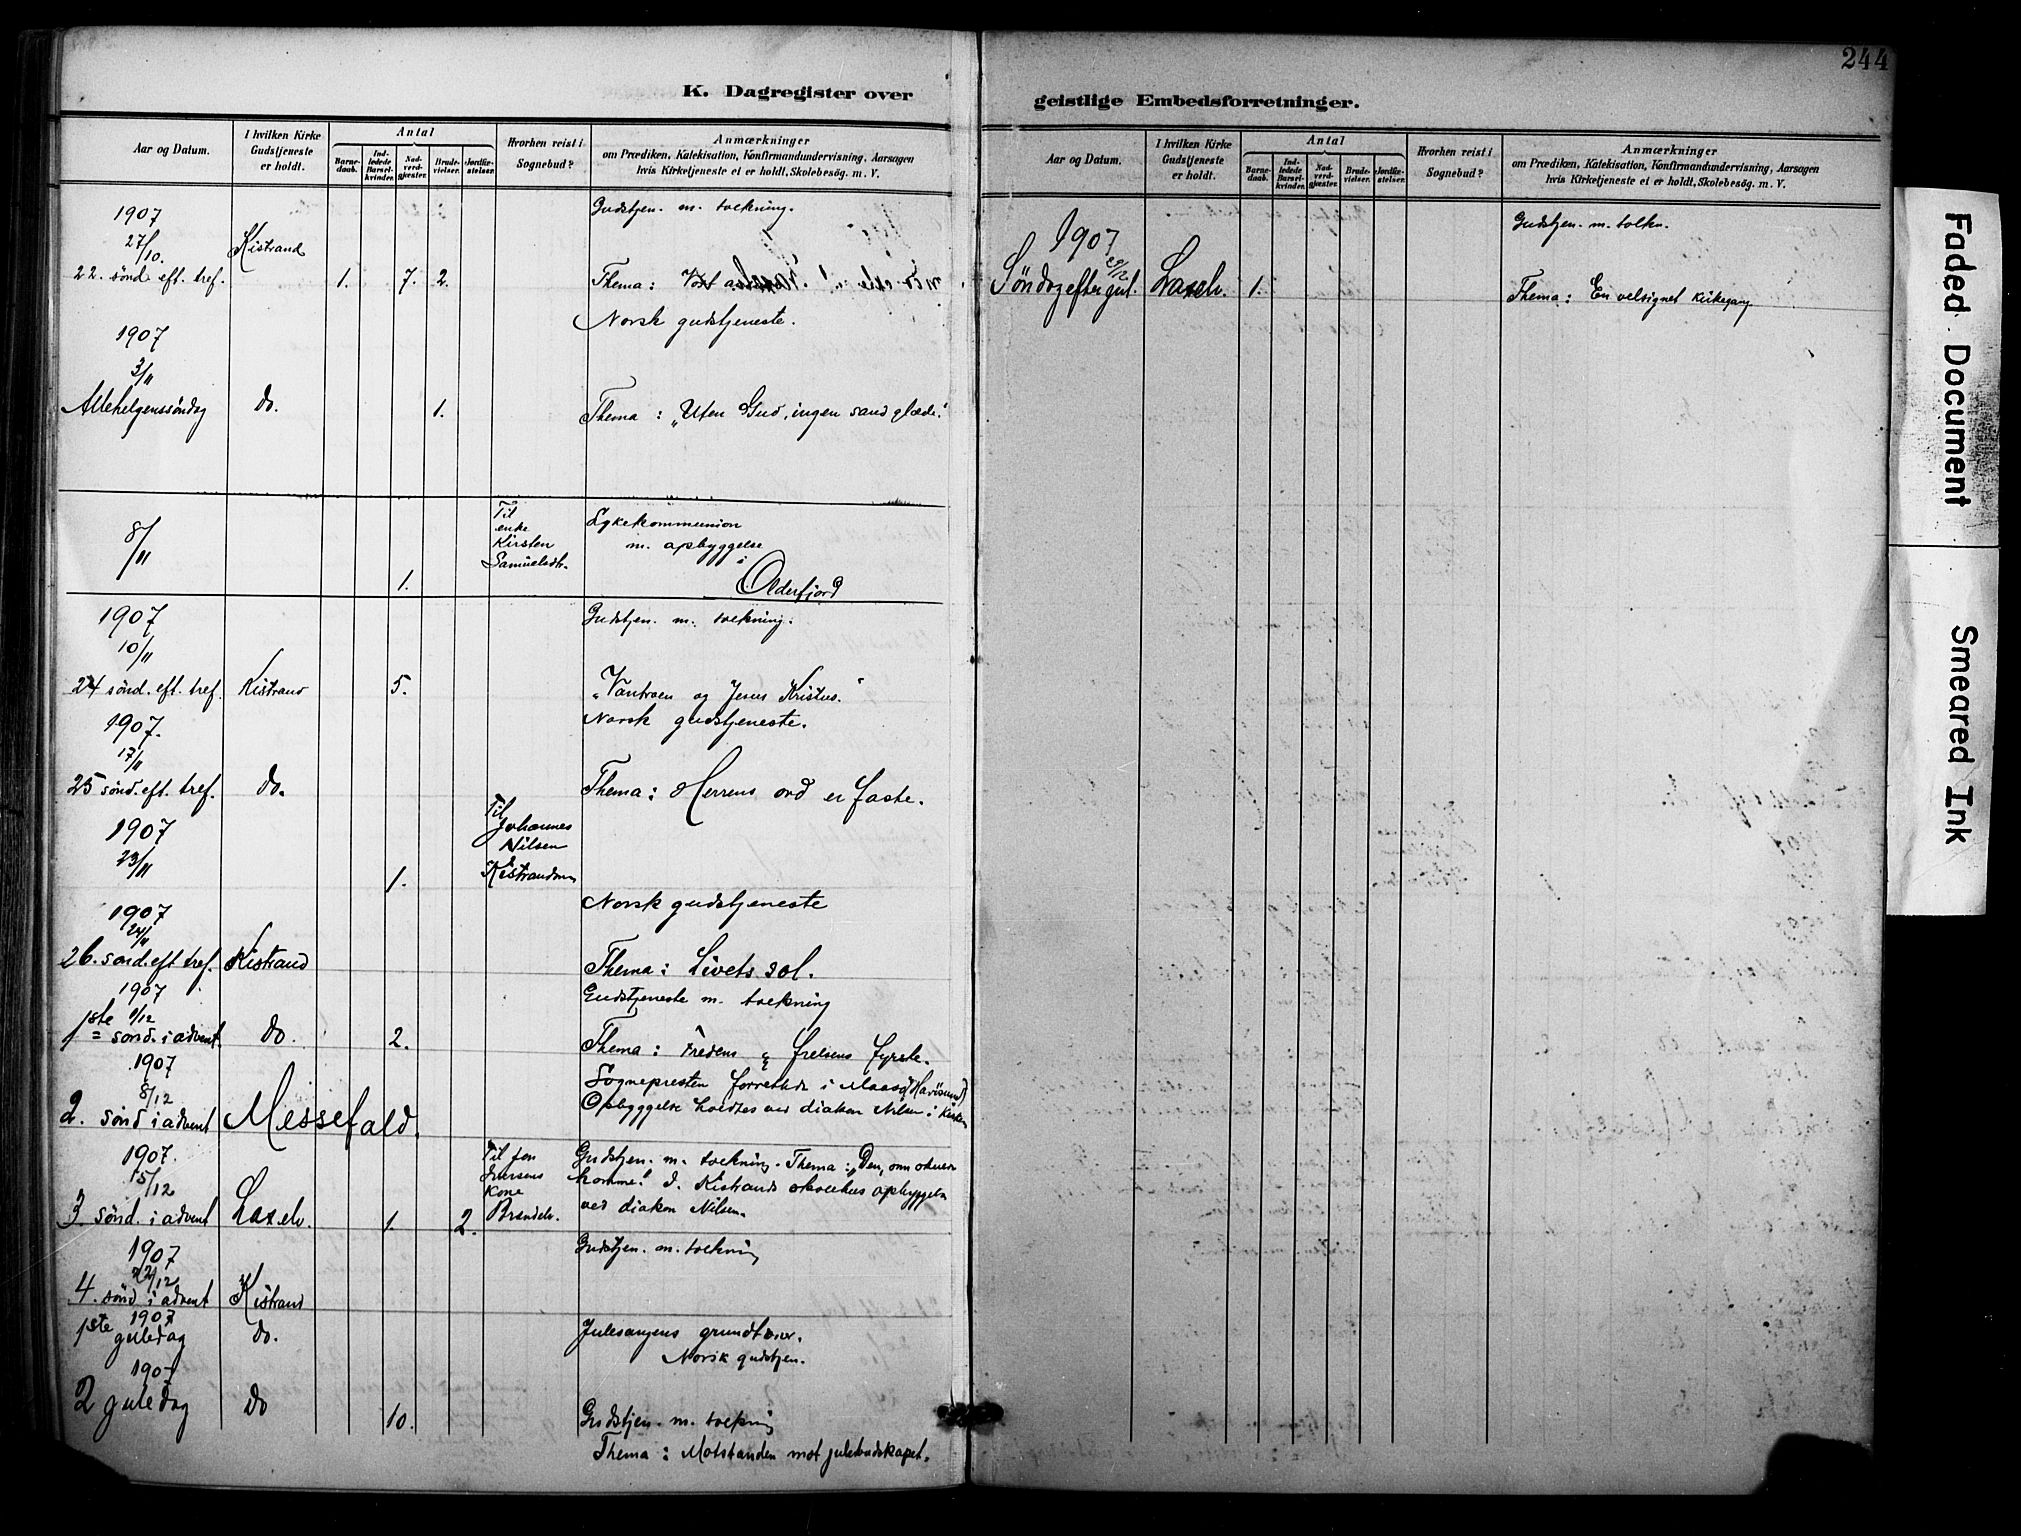 244
K. Dagregister over
geistlige Embedsforretninger.
Aar og Datum.
I hvilken Kirke Gudstjeneste er holdt.
Antal
Barne-daab.
Ind-ledede Barsel-kvinder.
Nad-verd-gjæster.
Brude-vielser.
Jordfæ-stelser.
Hvorhen reist i Sognebud?
Anmærkninger
om Prædiken, Katekisation, Konfirmandundervisning, Aarsagen
hvis Kirketjeneste ei er holdt, Skolebesøg. m. V.
1907
27/10.
Kistrand
Gudstjen. m. tolkning.
22. sønd eft. tref. 1. 7. 2. Thema: Vort
Norsk gudstjeneste.
1907
3/11
Allehelgenssøndag do. 1. Thema: „Uten Gud, ingen sand glæde."
8/11
Til enke Kirsten Samuelsdtr.
1.
Sykekommunion
m. opbyggelse
i
Olderfjord
1907
10/11
Gudstjen. m. tolkning.
24 sønd. eft. tref. Kistrand 5. „Vantroen og Jesus Kristus."
1907.
17/11
Norsk gudstjeneste.
25 sønd. eft. tref. do. Thema: Herrens ord er faste.
1907
23/11
1.
Til Johannes Nilsen
1907
24/11
Norsk gudstjeneste
26. sønd. eft tref. Kistrand Thema: Livets sol.
1907
1/12
Gudstjeneste m. tolkning
1ste sønd. i advent. do. 2. Thema: Fredens & frelsens fyrste.
1907
8/12
Sognepresten forrettede i Maasø (Havøsund)
2. sønd i advent Messefald. Opbyggelse holdtes ved diakon Nilsen i kirken
1907.
15/12
Til Jon Iversens kone Brendelv.
Gudstjen. m. tolkning. Thema: „Den, som skulde
komme." I Kistrands skolehus opbyggelse
ved diakon Nilsen.
3. sønd. i advent Laxelv. 1. 2.
1907
22/12
Gudstjen. m. tolkning
4. sønd. i advent Kistrand
1907
1ste juledag do. Julesangens grundtoner.
Norsk gudstjen.
1907
2 juledag do 10. Gudstjen. m. tolkning
Thema: Motstanden mot julebudskapet.
Aar og Datum.
I hvilken Kirke Gudstjeneste er holdt.
Antal
Barne-daab.
Ind-ledede Barsel-kvinder.
Nad-verd-gjæster.
Brude-vielser.
Jordfæ-stelser.
Hvorhen reist i Sognebud?
Anmærkninger
om Prædiken, Katekisation, Konfirmandundervisning, Aarsagen
hvis Kirketjeneste ei er holdt, Skolebesøg. m. V.
1907
29/12
Gudstjen. m. tolkn.
Søndag efter jul. Laxelv. 1. Thema: En velsignet kirkegang
Faded Document
Smeared Ink